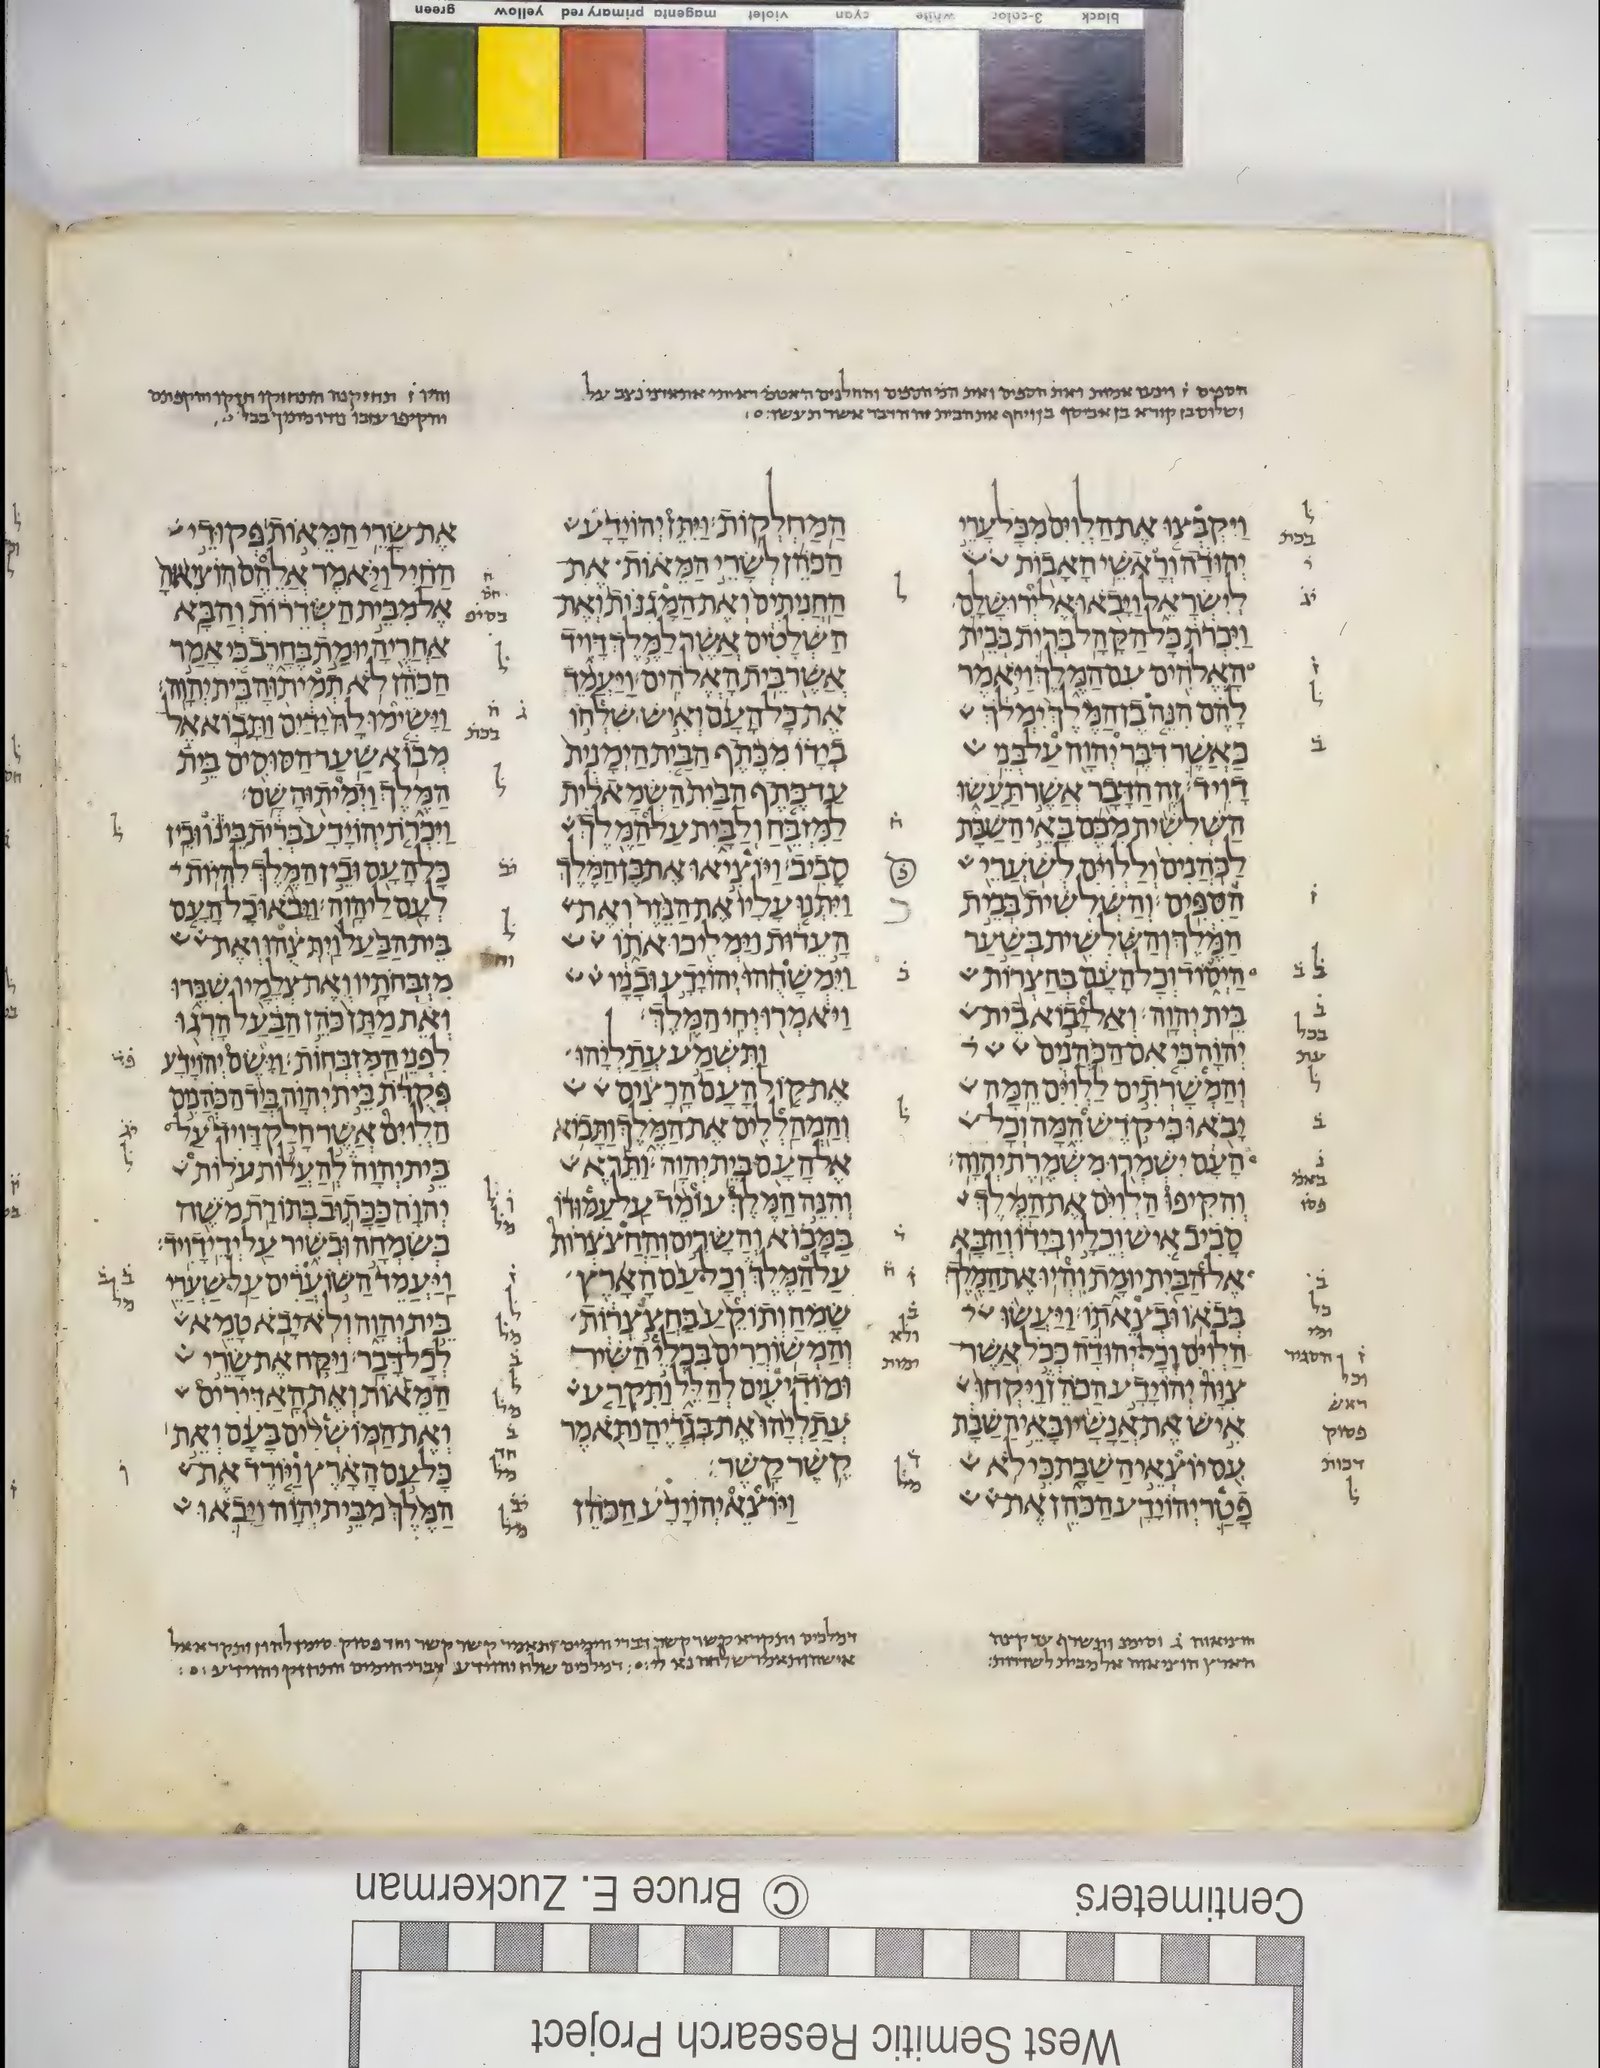 green yellow primary red magenta violet cyan white 3-color black
ויקבצו את הלוים מכל ערי
יהודה וראשי האבות
לישראל ויבאו אל ירושלם׃
ויכרת כל הקהל ברית בבית
האלהים עם המלך ויאמר
להם הנה בן המלך ימלך
כאשר דבר יהוה על בני
דויד׃ זה הדבר אשר תעשו
השלשית מכם באי השבת
לכהנים וללוים לשערי
הספים׃ והשלשית בבית
המלך והשלשית בשער
היסוד וכל העם בחצרות
בית יהוה׃ ואל יבוא בית
יהוה כי אם הכהנים
והמשרתים ללוים המה
יבאו כי קדש המה וכל
העם ישמרו משמרת יהוה׃
והקיפו הלוים את המלך
סביב איש וכליו בידו והבא
אל הבית יומת והיו את המלך
בבאו ובצאתו׃ ויעשו
הלוים וכל יהודה ככל אשר
צוה יהוידע הכהן ויקחו
איש את אנשיו באי השבת
עם יוצאי השבת כי לא
פטר יהוידע הכהן את
המחלקות׃ ויתן יהוידע
הכהן לשרי המאות את
החניתים ואת המגנות ואת
השלטים אשר למלך דויד
אשר בית האלהים׃ ויעמד
את כל העם ואיש שלחו
בידו מכתף הבית הימנית
עד כתף הבית השמאלית
למזבח ולבית על המלך
סביב׃ ויוציאו את בן המלך
ויתנו עליו את הנזר ואת
העדות וימליכו אתו
וימשחהו יהוידע ובניו
ויאמרו יחי המלך׃
ותשמע עתליהו
את קול העם הרצים
והמהללים את המלך ותבוא
אל העם בית יהוה׃ ותרא
והנה המלך עומד על עמודו
במבוא והשרים והחצצרות
על המלך וכל עם הארץ
שמח ותוקע בחצצרות
והמשוררים בכלי השיר
ומודיעים להלל ותקרע
עתליהו את בגדיה ותאמר
קשר קשר׃
ויוצא יהוידע הכהן
את שרי המאות פקודי
החיל ויאמר אלהם הוציאוה
אל מבית השדרות והבא
אחריה יומת בחרב כי אמר
הכהן לא תמיתוה בית יהוה׃
וישימו לה ידים ותבוא אל
מבוא שער הסוסים בית
המלך וימיתוה שם׃
ויכרת יהוידע ברית בינו ובין
כל העם ובין המלך להיות
לעם ליהוה׃ ויבאו כל העם
בית הבעל ויתצהו ואת
מזבחתיו ואת צלמיו שברו
ואת מתן כהן הבעל הרגו
לפני המזבחות׃ וישם יהוידע
פקדת בית יהוה ביד הכהנים
הלוים אשר חלק דויד על
בית יהוה להעלות עלות
יהוה ככתוב בתורת משה
בשמחה ובשיר על ידי דויד׃
ויעמד השוערים על שערי
בית יהוה ולא יבא טמא
לכל דבר׃ ויקח את שרי
המאות ואת האדירים
ואת המושלים בעם ואת
כל עם הארץ ויורד את
המלך מבית יהוה ויבאו
Centimeters © Bruce E. Zuckerman
West Semitic Research Project